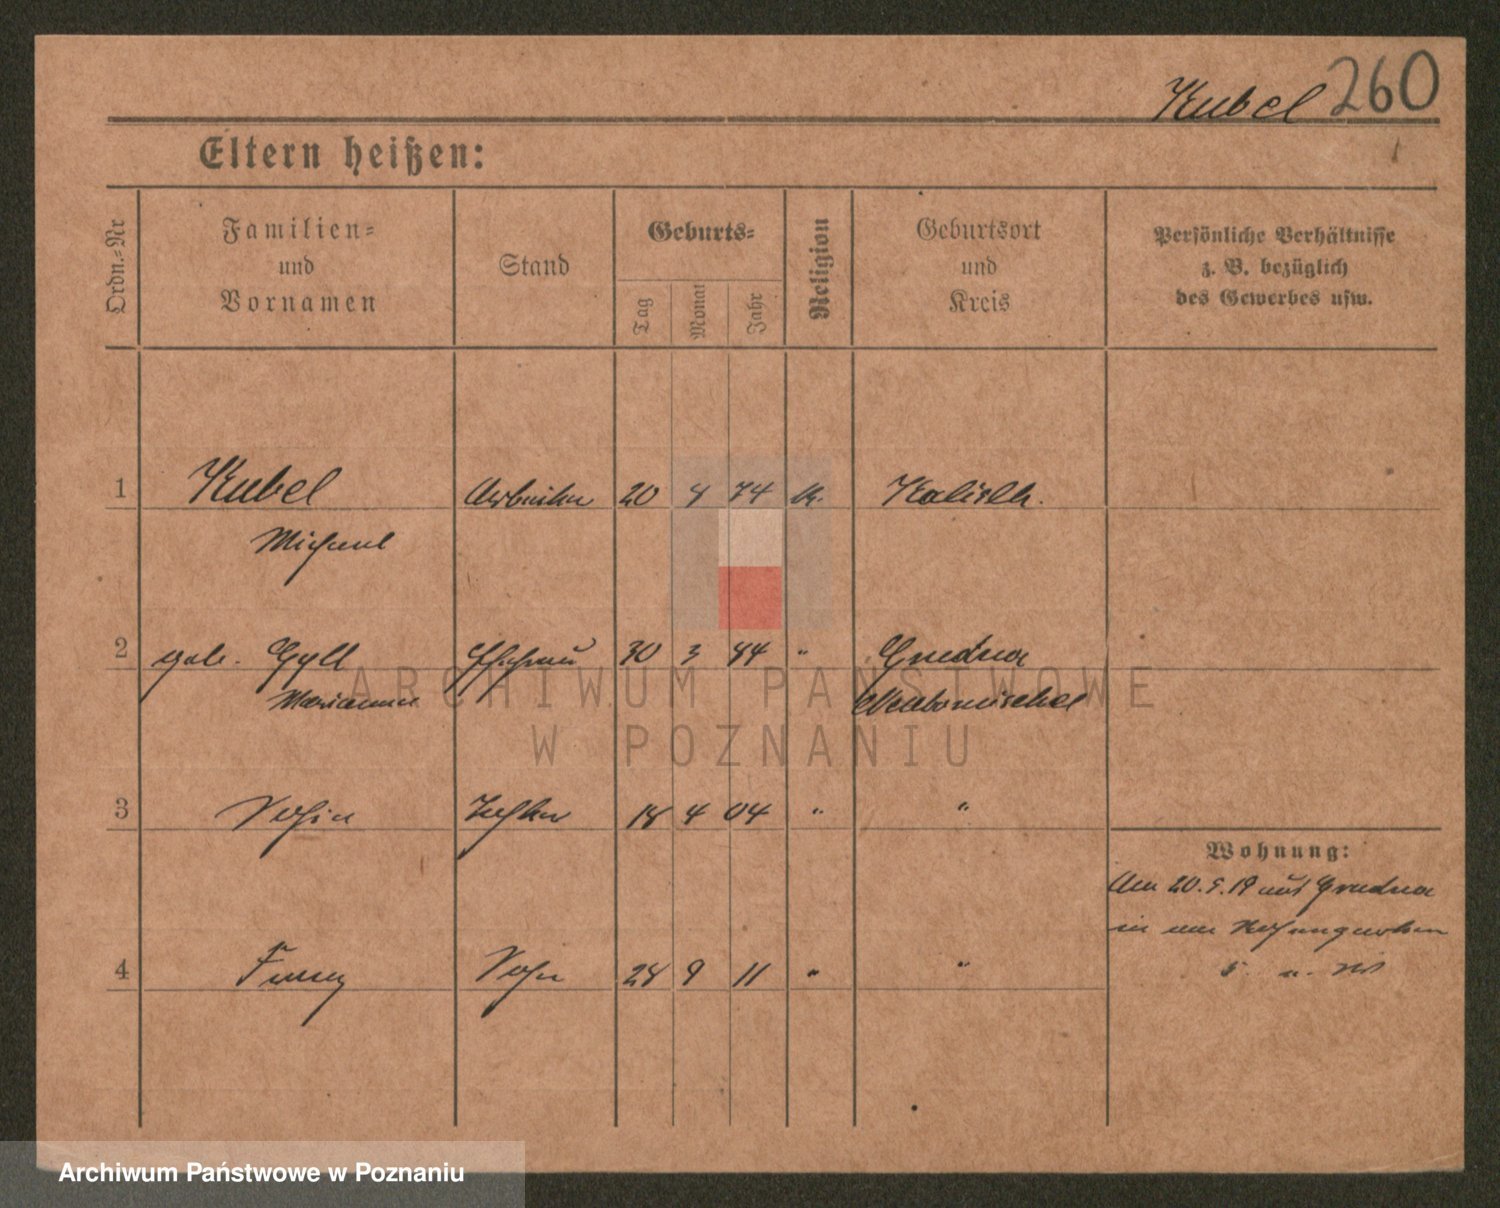 Kubel 260
Eltern heißen:
Ordn.-Nr
Familien-
und
Vornamen
Stand
Geburts-
Tag
Monat
Jahr
Religion
Geburtsort
und
Kreis
Persönliche Verhältnisse
z. B. bezüglich
des Gewerbes usw.
1 Kubel Arbeiter 20 74 k. Kalisch.
Michael
2 geb. Ehefrau 30 3 84 " Grudna
Marianna Neutomischel
3 Tochter 18 4 04 " "
Wohnung:
Am 20.5.19 aus Grudna
in
4 Franz Sohn 28 9 11 " "
5
ARCHIWUM PAŃSTWOWE
W POZNANIU
Archiwum Państwowe w Poznaniu